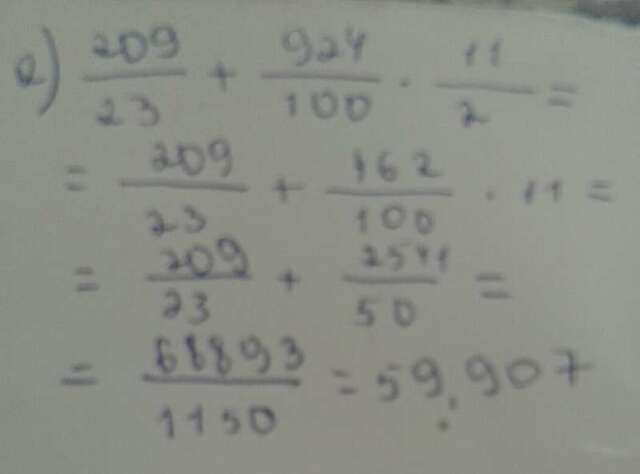 e) 209/23 + 924/100 · 11/2 =
= 209/23 + 462/100 · 11 =
= 209/23 + 2541/50 =
= 68893/1150 = 59,907